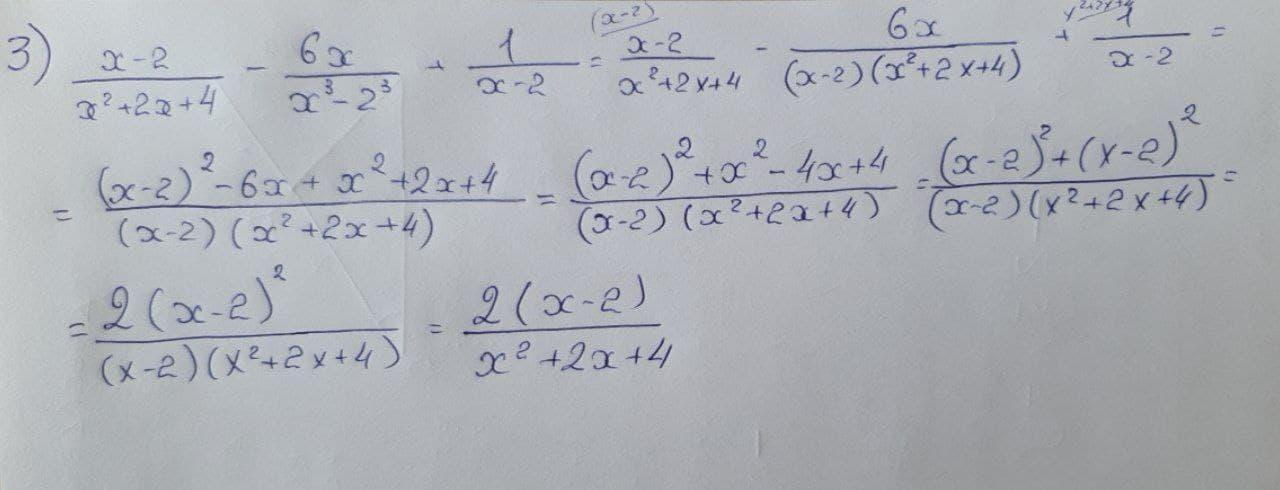 3) (x-2)/(x²+2x+4) - 6x/(x³-2³) + 1/(x-2) = (x-2)/(x²+2x+4) (x-2) - 6x/((x-2)(x²+2x+4)) + 1/(x-2) x²+2x+4 =
= ((x-2)²-6x+x²+2x+4)/((x-2)(x²+2x+4)) = ((x-2)²+x²-4x+4)/((x-2)(x²+2x+4)) = ((x-2)²+(x-2)²)/((x-2)(x²+2x+4)) =
= 2(x-2)²/((x-2)(x²+2x+4)) = 2(x-2)/(x²+2x+4)